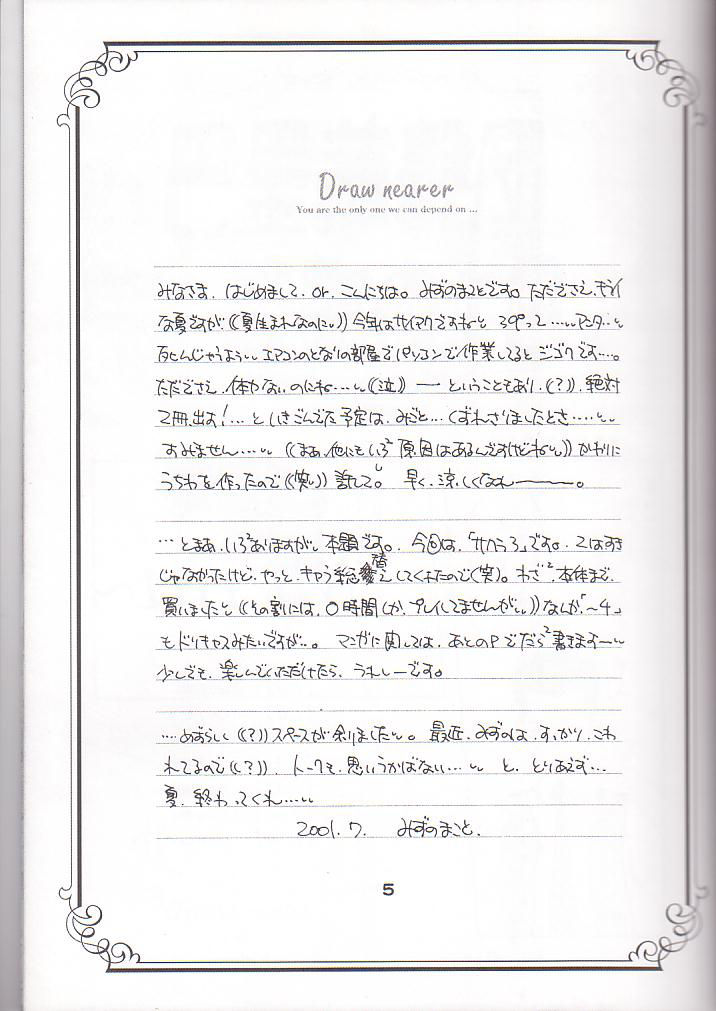 Draw nearer
You are the only one we can depend on ...
みなさま、はじめまして、or、こんにちは。みずのまことです。ただでさえ、キライ
な夏ですが((夏生まれなのに。))今年はサイアクですねと 39°って……アンタ…
死んじゃうよぅ… エアコンのとなりの部屋でパソコンで作業してると ジゴクです…。
ただでさえ、体力ないのにね……((泣)) ― ということもあり、(?)、絶対
2冊、出す!…と いきごんでた予定は、みごと…くずれさりましたとさ……
すみません…… ((まあ、他にもいろ2原因はあるんですけどね))かわりに
うちわを作ったので((笑))許して。 早く、涼しくなれ―――。
…とまあ、いろ2ありますが、本題です。今回は、「サクラ3」です。2はすき
じゃなかったけど、やっと、キャラ総替えしてくれたので(笑)。わざ2、本体まで、
買いましたと((その割には、○時間しか、プレイしてませんが))なんか「〜4」
もドリキャスみたいですが…。 マンガに関しては、あとのPでだら2書きます〜
少しでも、楽しんでいただけたら、うれしーです。
……めずらしく((?))スペースが余りました。最近、みずのは、すっかり、こわ
れてるので((?))、トークも、思いうかばない…… と、とりあえず…
夏、終わってくれ……
2001. 7. みずのまこと.
5